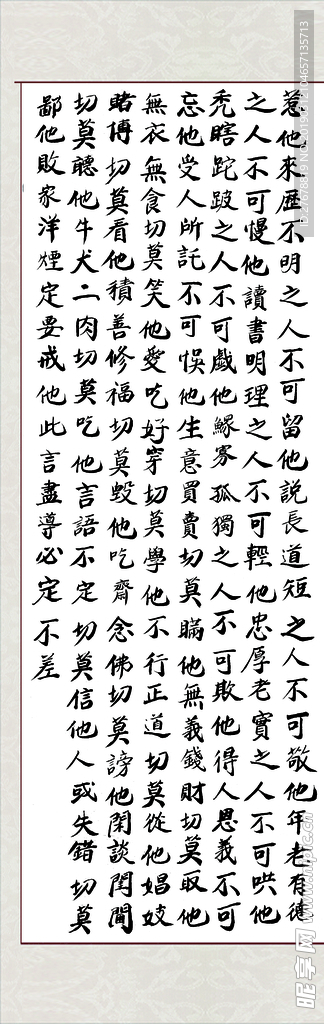 惹他來歷不明之人不可留他說長道短之人不可敬他年老有德
之人不可慢他讀書明理之人不可輕他忠厚老實之人不可哄他
禿瞎跎跛之人不可戲他鰥寡孤獨之人不可欺他得人恩義不可
忘他受人所託不可悞他生意買賣切莫瞞他無義錢財切莫取他
無衣無食切莫笑他愛吃好穿切莫學他不行正道切莫從他娼妓
賭博切莫看他積善修福切莫毀他吃齋念佛切莫謗他閑談閨閫
切莫聽他牛犬二肉切莫吃他言語不定切莫信他人或失錯切莫
鄙他敗家洋煙定要戒他此言盡導必定不差
昵享网